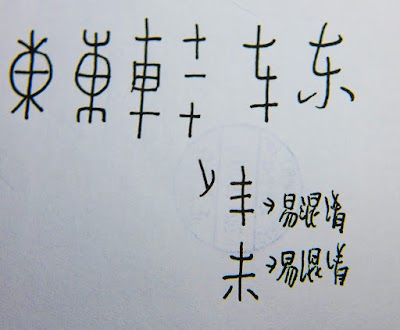 東 東 車 十一十 车 东
丰→易混淆
未→易混淆